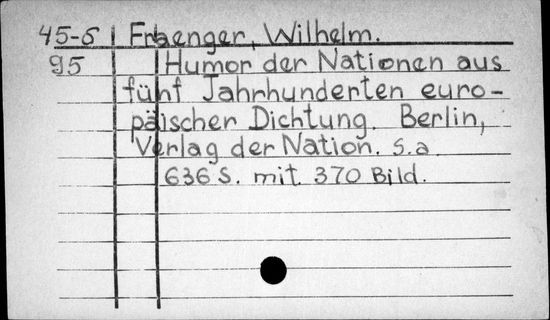 45-5 Fraenger, Wilhelm.
95 Humor der Nationen aus
fünf Jahrhunderten euro-
päischer Dichtung. Berlin,
Verlag der Nation. S.a.
636 S. mit 370 Bild.